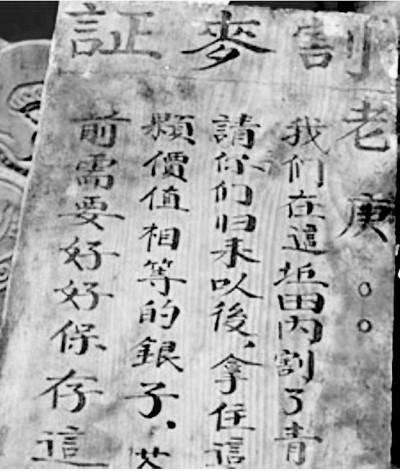 割麥証
老庚：
我们在這坵田內割了青
請你们归来以後，拿住這
顆價值相等的銀子．
前需要好好保存這